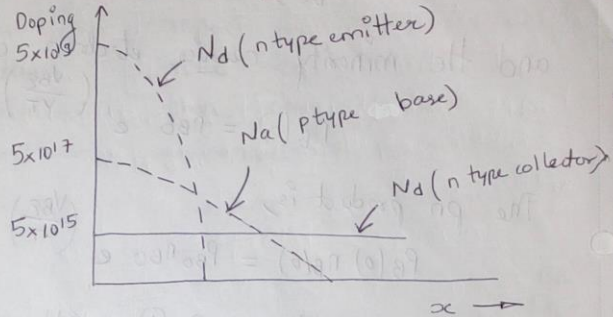 Doping
5x10¹⁹
Nd (n type emitter)
Na (p type base)
5x10¹⁷
Nd (n type collector)
5x10¹⁵
x →